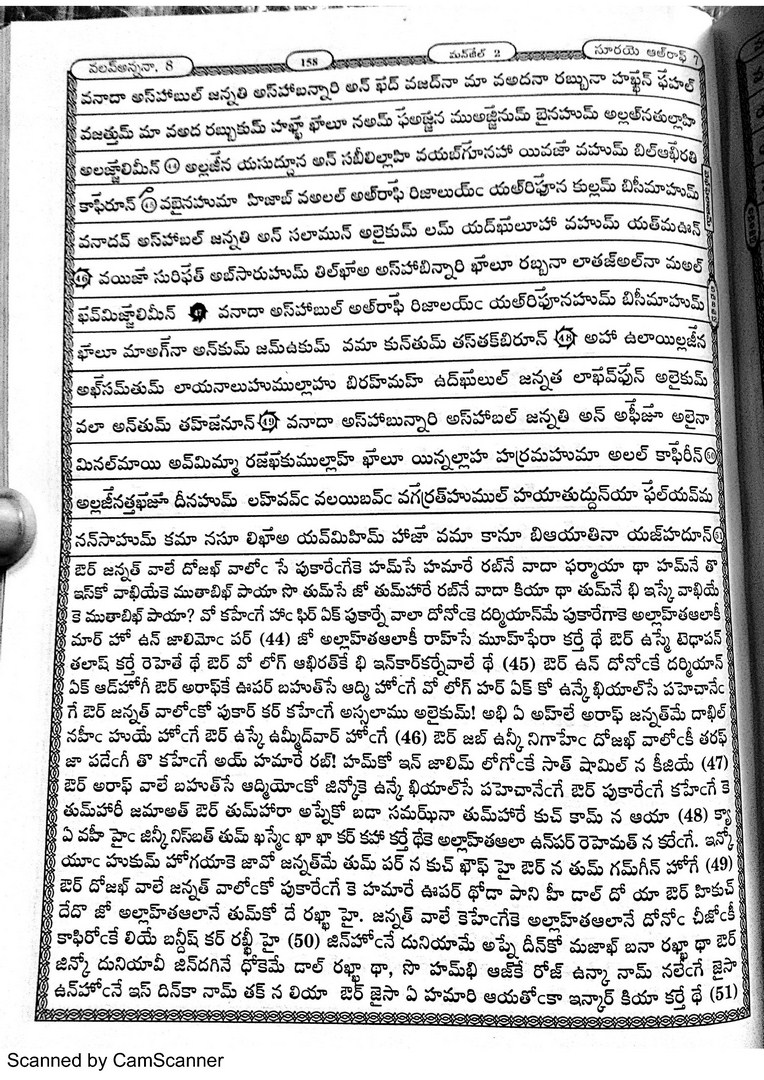 వలవ్అన్ననా, 8
158
మన్‌జీల్ 2
సూరయె ఆఅ్‌రాఫ్ 7
వనాదా అస్‌హాబుల్ జన్నతి అస్‌హాబన్నారి అన్ ఖేద్ వజద్‌నా మా వఅదనా రబ్బునా హఖ్ఖేన్ ఫేహల్
వజత్తుమ్ మా వఅద రబ్బుకుమ్ హఖ్ఖే ఖేాలూ నఅమ్ ఫేఅజ్జేన ముఅజ్జేనుమ్ బైనహుమ్ అల్లఅ్‌నతుల్లాహి
అలజ్జేాలిమీన్ 44 అల్లజేీన యసుద్దూన అన్ సబీలిల్లాహి వయబ్‌గూనహా యివజేా వహుమ్ బిల్‌ఆఖేిరతి
కాఫేిరూన్ 45 వబైనహుమా హిజాబ్ వఅలల్ అఅ్‌రాఫి రిజాలుయ్ఁ యఅ్‌రిఫూన కుల్లమ్ బిసీమాహుమ్
వనాదవ్ అస్‌హాబల్ జన్నతి అన్ సలామున్ అలైకుమ్ లమ్ యద్‌ఖులూహా వహుమ్ యత్‌మఊన్
46 వయిజేా సురిఫేత్ అబ్‌సారుహుమ్ తిల్‌ఖేాఅ అస్‌హాబిన్నారి ఖేాలూ రబ్బనా లాతజ్‌అల్‌నా మఅల్
ఖేవ్‌మిజ్జేాలిమీన్ 47 వనాదా అస్‌హాబుల్ అఅ్‌రాఫి రిజాలయ్ఁ యఅ్‌రిఫూనహుమ్ బిసీమాహుమ్
ఖేాలూ మాఅగ్‌నా అన్‌కుమ్ జమ్‌ఉకుమ్ వమా కున్‌తుమ్ తస్‌తక్‌బిరూన్ 48 అహా ఉలాయిల్లజేీన
అఖ్‌సమ్‌తుమ్ లాయనాలుహుముల్లాహు బిరహ్‌మహ్ ఉద్‌ఖులుల్ జన్నత లాఖేవ్‌ఫున్ అలైకుమ్
వలా అన్‌తుమ్ తహ్‌జేనూన్ 49 వనాదా అస్‌హాబున్నారి అస్‌హాబల్ జన్నతి అన్ అఫీజేూ అలైనా
మినల్‌మాయి అవ్‌మిమ్మా రజేఖేకుముల్లాహ్ ఖేాలూ యిన్నల్లాహ హర్రమహుమా అలల్ కాఫేిరీన్ 50
అల్లజేీనత్తఖేజేూ దీనహుమ్ లహ్‌వవ్ఁ వలయిబవ్ఁ వగేర్రత్‌హుముల్ హయాతుద్దున్‌యా ఫేల్‌యవ్‌మ
నన్‌సాహుమ్ కమా నసూ లిఖేాఅ యవ్‌మిహిమ్ హాజేా వమా కానూ బిఆయాతినా యజ్‌హదూన్ 51
ఔర్ జన్నత్ వాలే దోజఖ్ వాలోఁ సే పుకారేఁగేకె హమ్‌సే హమారే రబ్‌నే వాదా ఫర్మాయా థా హమ్‌నే తొ
ఇస్‌కో వాఖియేకె ముతాబిఖ్ పాయా సొ తుమ్‌సే జో తుమ్‌హారే రబ్‌నే వాదా కియా థా తుమ్‌నే భి ఇస్కే వాఖియే
కె ముతాబిఖ్ పాయా? వో కహేఁగే హాఁ ఫిర్ ఏక్ పుకార్నే వాలా దోనోఁకె దర్మియాన్‌మే పుకారేగాకె అల్లాహ్‌తఆలాకీ
మార్ హో ఉన్ జాలిమోఁ పర్ (44) జో అల్లాహ్‌తఆలాకీ రాహ్‌సే మూహ్‌ఫేరా కర్తే థే ఔర్ ఉస్మే టెఢాపన్
తలాష్ కర్తే రెహెతే థే ఔర్ వో లోగ్ ఆఖిరత్‌కే భి ఇన్‌కార్‌కర్నేవాలే థే (45) ఔర్ ఉన్ దోనోఁకే దర్మియాన్
ఏక్ ఆడ్‌హోగీ ఔర్ అరాఫ్‌కే ఊపర్ బహుత్‌సే ఆద్మి హోఁగే వో లోగ్ హర్ ఏక్ కో ఉన్కే ఖియాల్‌సే పహెచానేఁ
గే ఔర్ జన్నత్ వాలోఁకో పుకార్ కర్ కహేఁగే అస్సలాము అలైకుమ్! అభి ఏ అహ్‌లే అరాఫ్ జన్నత్‌మే దాఖిల్
నహీఁ హుయే హోఁగే ఔర్ ఉస్కే ఉమ్మీద్‌వార్ హోఁగే (46) ఔర్ జబ్ ఉన్కీ నిగాహేఁ దోజఖ్ వాలోఁకీ తరఫ్
జా పడేఁగీ తొ కహేఁగే అయ్ హమారే రబ్! హమ్‌కో ఇన్ జాలిమ్ లోగోఁకే సాత్ షామిల్ న కీజియే (47)
ఔర్ అరాఫ్ వాలే బహుత్‌సే ఆద్మియోఁకో జిన్కోకె ఉన్కే ఖియాల్‌సే పహెచానేఁగే ఔర్ పుకారేఁగే కహేఁగే కె
తుమ్‌హారీ జమాఅత్ ఔర్ తుమ్‌హారా అప్నేకో బడా సమఝ్‌నా తుమ్‌హారే కుచ్ కామ్ న ఆయా (48) క్యా
ఏ వహీ హైఁ జిన్కీ నిస్‌బత్ తుమ్ ఖస్మేఁ ఖా ఖా కర్ కహా కర్తే థేకె అల్లాహ్‌తఆలా ఉన్‌పర్ రెహెమత్ న కరేఁగే. ఇన్కో
యూఁ హుకుమ్ హోగయాకె జావో జన్నత్‌మే తుమ్ పర్ న కుచ్ ఖౌఫ్ హై ఔర్ న తుమ్ గమ్‌గీన్ హోగే (49)
ఔర్ దోజఖ్ వాలే జన్నత్ వాలోఁకో పుకారేఁగే కె హమారే ఊపర్ థోడా పాని హీ డాల్ దో యా ఔర్ హికుచ్
దేదొ జో అల్లాహ్‌తఆలానే తుమ్‌కో దే రఖ్ఖా హై. జన్నత్ వాలే కెహేఁగేకె అల్లాహ్‌తఆలానే దోనోఁ చీజోఁకీ
కాఫిరోఁకే లియే బన్దీష్ కర్ రఖ్ఖీ హై (50) జిన్‌హోఁనే దునియామే అప్నే దీన్‌కో మజాఖ్ బనా రఖ్ఖా థా ఔర్
జిన్కో దునియావీ జిన్‌దగినే ధోకెమే డాల్ రఖ్ఖా థా, సొ హమ్‌భి ఆజ్‌కే రోజ్ ఉన్కా నామ్ నలేఁగే జైసా
ఉన్‌హోఁనే ఇస్ దిన్‌కా నామ్ తక్ న లియా ఔర్ జైసా ఏ హమారి ఆయతోఁకా ఇన్కార్ కియా కర్తే థే (51)
Scanned by CamScanner